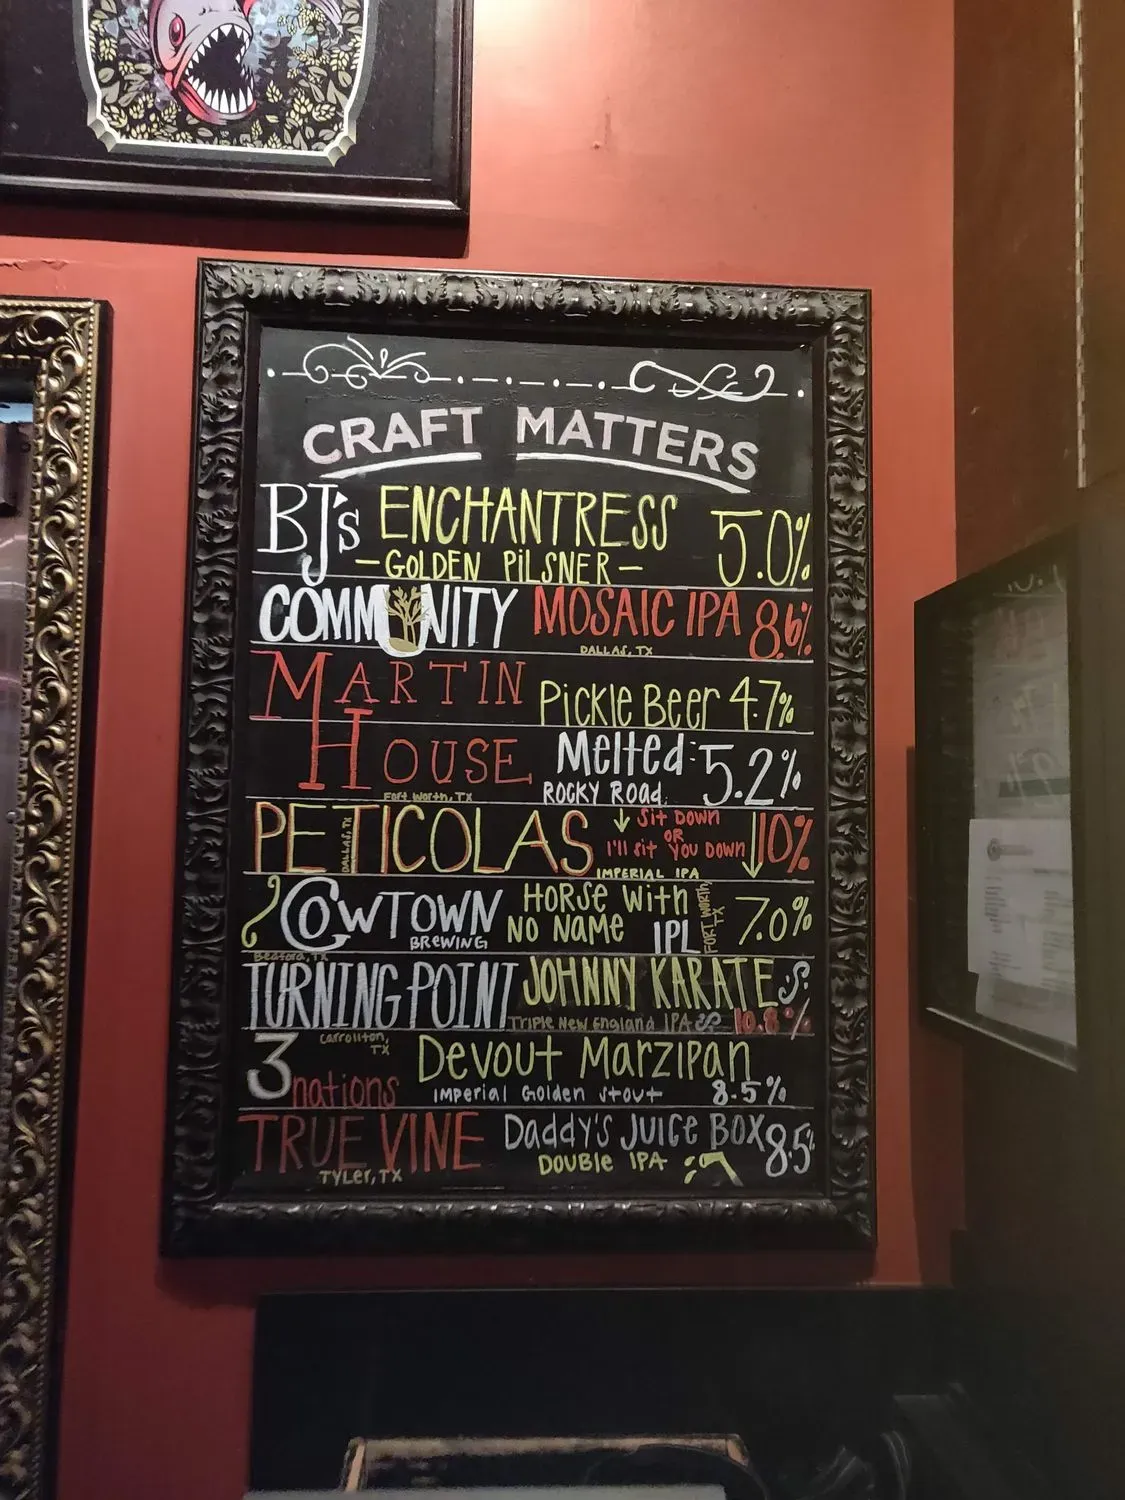 CRAFT MATTERS
BJ's ENCHANTRESS 5.0%
-GOLDEN PILSNER-
COMMUNITY MOSAIC IPA 8.6%
DALLAS, TX
MARTIN Pickle Beer 4.7%
HOUSE Melted 5.2%
ROCKY ROAD
Fort Worth, TX
PETICOLAS Sit DOWN 10%
DALLAS, TX
OR
I'll sit YOU DOWN
IMPERIAL IPA
COWTOWN HORSE With 7.0%
BREWING NO NAME IPL
FORT WORTH TX
Bedford, TX
TURNING POINT JOHNNY KARATE
TRIPLE New England IPA 10.8%
Carrollton, TX
3 nations Devout Marzipan
IMPERIAL Golden Stout 8.5%
TRUE VINE Daddy's Juice Box 8.5%
TYLER, TX
DOUBLE IPA